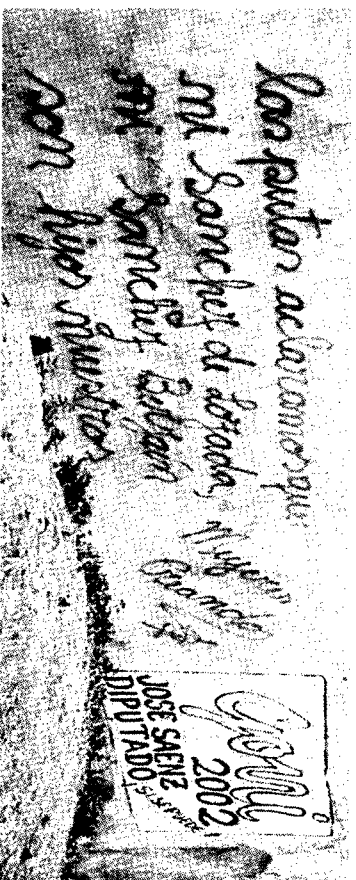 las putas aclaramos que
ni Sanchez de Lozada,
ni Sanchez Berzaín
son hijos nuestros
Goni
2002
JOSE SAENZ
DIPUTADO